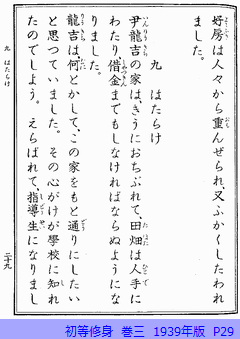 好房は人々から重んぜられ、又ふかくしたわれ
ました。
九 はたらけ
尹龍吉の家は、きうにおちぶれて、田畑は人手に
わたり、借金までもしなければならぬようにな
りました。
龍吉は、何とかして、この家をもと通りにしたい
と思つていました。その心がけが學校に知れ
たのでしよう。えらばれて、指導生になりまし
九 はたらけ
二十九
初等修身 巻三 1939年版 P29